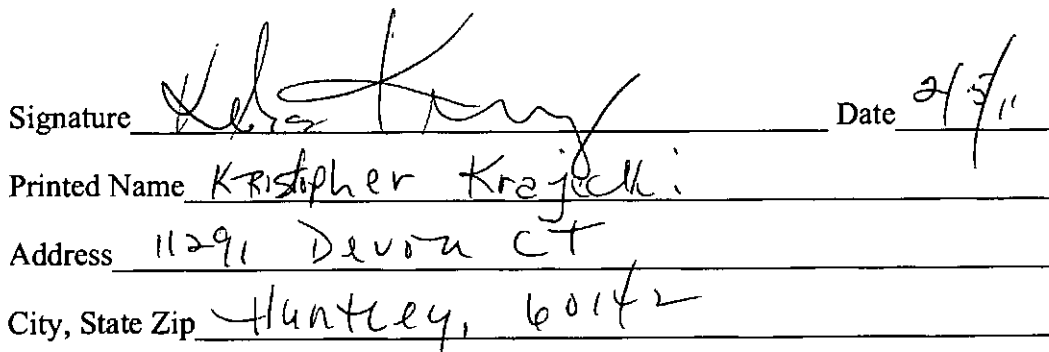 Signature Date 2/5/11
Printed Name Kristopher
Address 11291 Devon CT
City, State Zip Huntley, 60142